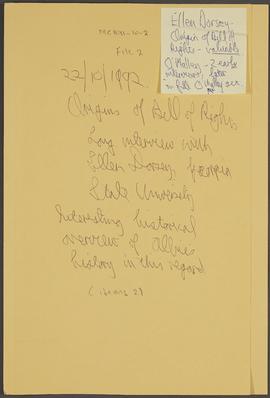 File 2
Ellen Dorsey -
Origin of Bill of
Rights - valuable
O'Malley - 2 early
interviews, later
in full O'Malley
22/10/1992
Origins of Bill of Rights
Long interview with
Ellen Dorsey, Georgia
State University
Interesting historical
overview of Albie's
history in this regard